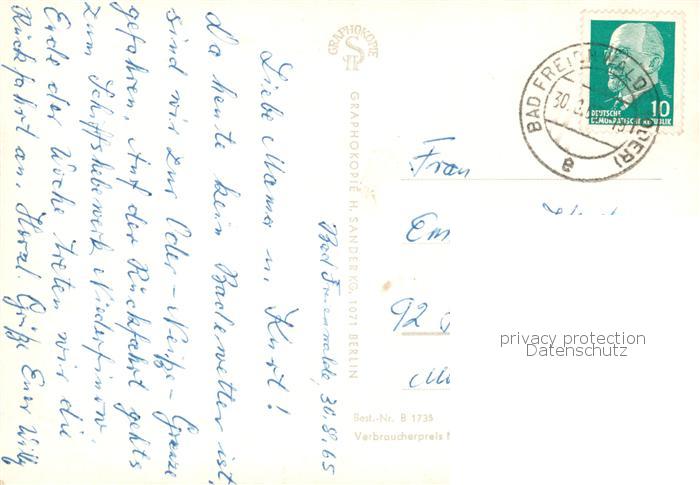 Bad Freienwalde, 30.8.65
Liebe Mama u. Kurt!
Da heute kein Badewetter ist,
sind wir zur Oder-Neiße-Grenze
gefahren. Auf der Rückfahrt gehts
zum Schiffshebewerk Niederfinow.
Ende der Woche treten wir die
Rückfahrt an. Herzl. Grüße Euer Willy
GRAPHOKOPIE
GRAPHOKOPIE H. SANDER KG, 1071 BERLIN
Best.-Nr. B 1735
Verbraucherpreis
BAD FREIENWALDE (ODER)
30.8.
a
10
DEUTSCHE
DEMOKRATISCHE REPUBLIK
Frau
92
privacy protection
Datenschutz